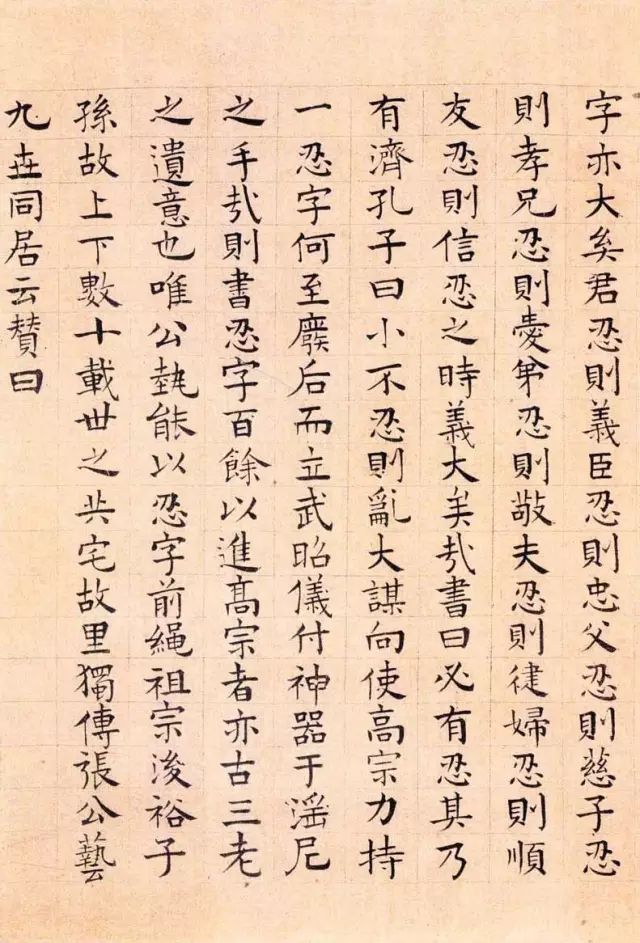 字亦大矣君忍則義臣忍則忠父忍則慈子忍
則孝兄忍則愛弟忍則敬夫忍則健婦忍則順
友忍則信忍之時義大矣哉書曰必有忍其乃
有濟孔子曰小不忍則亂大謀向使高宗力持
一忍字何至廢后而立武昭儀付神器于淫尼
之手哉則書忍字百餘以進髙宗者亦古三老
之遺意也唯公執能以忍字前繩祖宗浚裕子
孫故上下數十載世之共宅故里獨傳張公藝
九世同居云贊曰